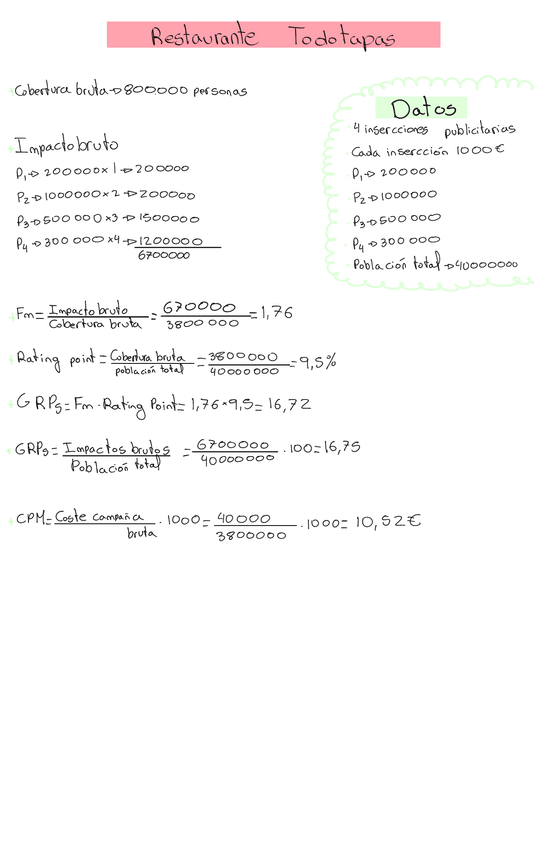 Restaurante Todotapas
Cobertura bruta → 800000 personas
Datos
4 insercciones publicitarias
Cada insercción 1000€
P1 → 200000
P2 → 1000000
P3 → 500 000
P4 → 300 000
Población total → 40000000
Impacto bruto
P1 → 200000 x 1 → 200000
P2 → 1000000 x 2 → 2200000
P3 → 500 000 x3 → 1500000
P4 → 300 000 x4 → 1200000
6700000
Fm = Impacto bruto / Cobertura bruta = 670000 / 3800 000 = 1,76
Rating point = Cobertura bruta / población total = 3800000 / 40000000 = 9,5%
GRPs = Fm · Rating Point = 1,76 × 9,5 = 16,72
GRPs = Impactos brutos / Población total = 6700000 / 40000000 · 100 = 16,75
CPM = Coste campaña / bruta · 1000 = 40000 / 3800000 · 1000 = 10,52€